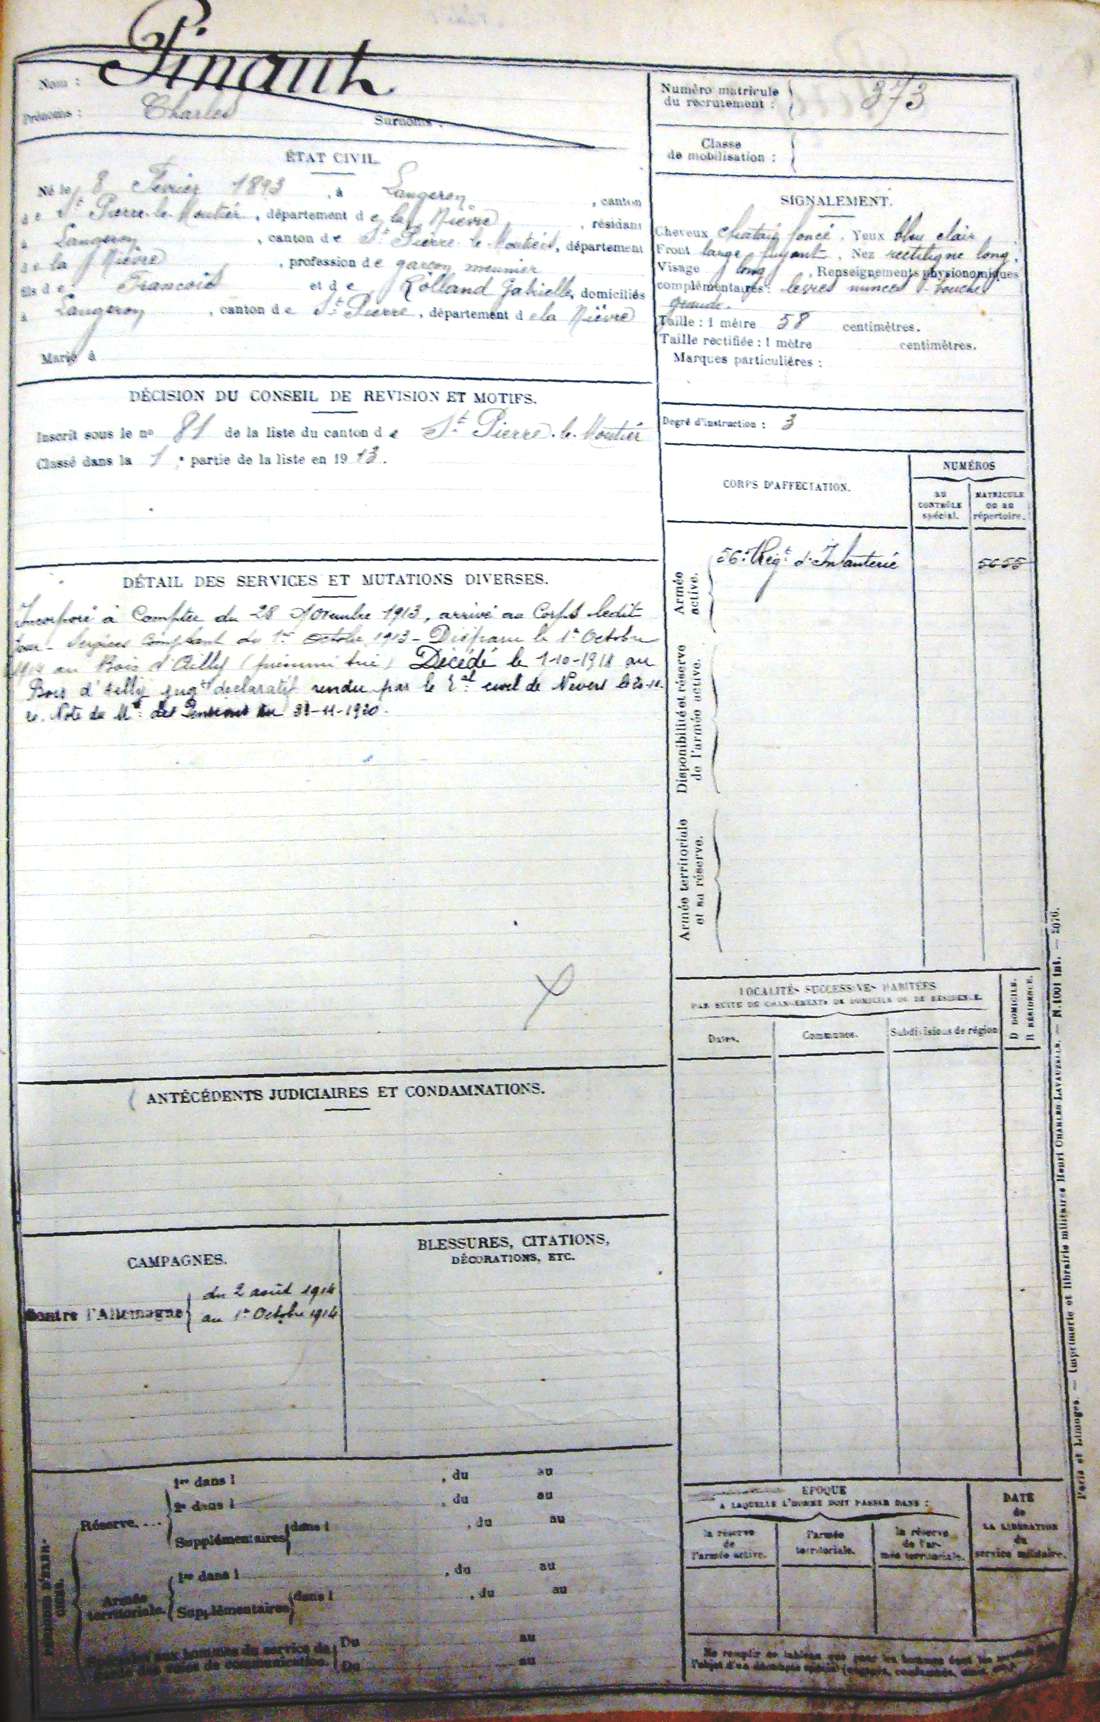 Nom : Pinault
Prénoms : Charles Surnoms :
ÉTAT CIVIL.
Né le 8 Février 1893, à Langeron, canton
de St Pierre-le-Moutier, département de la Nièvre, résidant
à Langeron, canton de St Pierre le Moutier, département
de la Nièvre, profession de garçon meunier
fils de François et de Rolland Gabrielle, domiciliés
à Langeron, canton de St Pierre, département de la Nièvre
Marié à
DÉCISION DU CONSEIL DE REVISION ET MOTIFS.
Inscrit sous le no 81 de la liste du canton de St Pierre-le-Moutier
Classé dans la 1e partie de la liste en 1913.
DÉTAIL DES SERVICES ET MUTATIONS DIVERSES.
Incorporé à Compter du 28 Novembre 1913, arrivé au Corps ledit
jour - Services Comptant du 1er Octobre 1913 - Disparu le 1er Octobre
1914 au Bois d'Ailly (présumé tué) Décédé le 1-10-1914 au
Bois d'Ailly jugt déclaratif rendu par le Tal civil de Nevers le
Note du Mre des Pensions du -11-1920.
ANTÉCÉDENTS JUDICIAIRES ET CONDAMNATIONS.
CAMPAGNES.
Contre l'Allemagne
du 2 août 1914
au 1er Octobre 1914
BLESSURES, CITATIONS,
DÉCORATIONS, ETC.
1re dans l , du au
Réserve.... 2e dans l , du au
Supplémentaires dans l , du au
1re dans l , du au
Armée
territoriale. Supplémentaires dans l , du au
Du au
Du au
Numéro matricule
du recrutement : 373
Classe
de mobilisation :
SIGNALEMENT.
Cheveux châtain foncé, Yeux bleu clair
Front large fuyant, Nez rectiligne long,
Visage long, Renseignements physionomiques
complémentaires : lèvres minces - bouche
grande.
Taille : 1 mètre 58 centimètres.
Taille rectifiée : 1 mètre centimètres.
Marques particulières :
Degré d'instruction : 3
CORPS D'AFFECTATION.
NUMÉROS
AU
CONTRÔLE
spécial.
MATRICULE
OU AU
répertoire.
Armée
active.
56e Régt d'Infanterie 5655
Disponibilité et réserve
de l'armée active.
Armée territoriale
et sa réserve.
LOCALITÉS SUCCESSIVES HABITÉES
PAR SUITE DE CHANGEMENTS DE DOMICILE OU DE RÉSIDENCE.
Dates.
Communes.
Subdivisions de région
D DOMICILE.
R RÉSIDENCE.
ÉPOQUE
A LAQUELLE L'HOMME DOIT PASSER DANS :
la réserve
de
l'armée active.
l'armée
territoriale.
la réserve
de l'ar-
mée territoriale.
DATE
de
LA LIBÉRATION
du
service militaire.
Paris et Limoges. — Imprimerie et librairie militaires Henri CHARLES-LAVAUZELLE. — N. 1001 Int. — 2076.